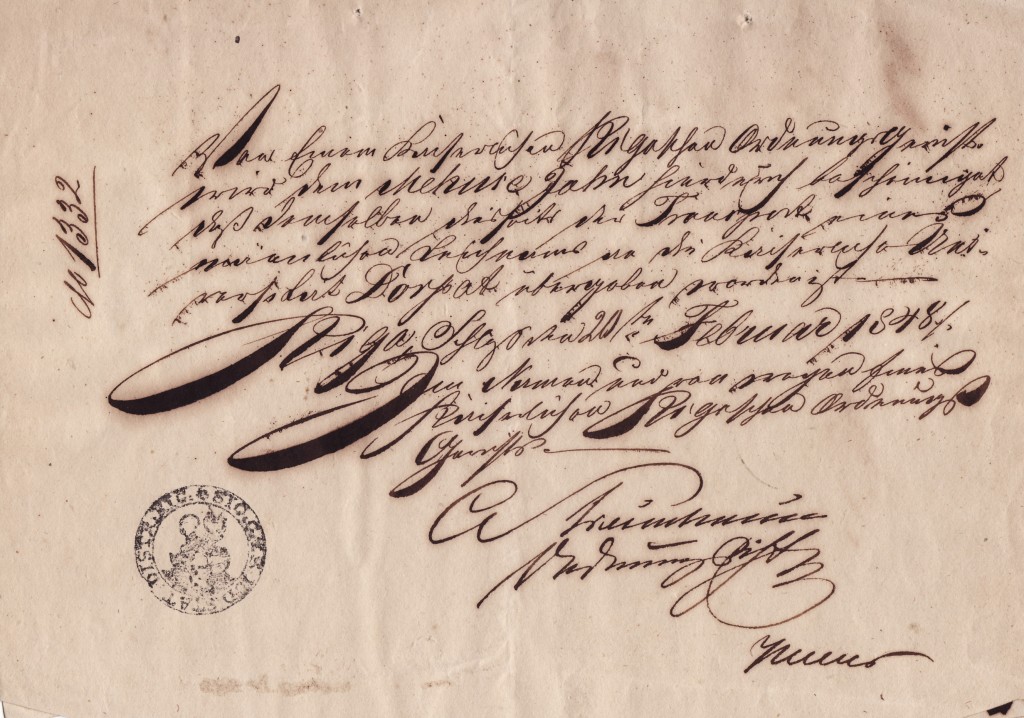 No 1332
Von Einem Kaiserlichen Rigaschen Ordnungs Gericht
wird dem Mekusch Jahn hierdurch bescheiniget
daß demselben dieseits der Transport eines
männlichen Leichnams an die Kaiserliche Uni-
versität Dorpat übergeben worden ist
Riga Schloß den 20ten Februar 1848
Im Namen und von wegen Eines
Kaiserlichen Rigaschen Ordnungs
Gerichts
Ordnungs